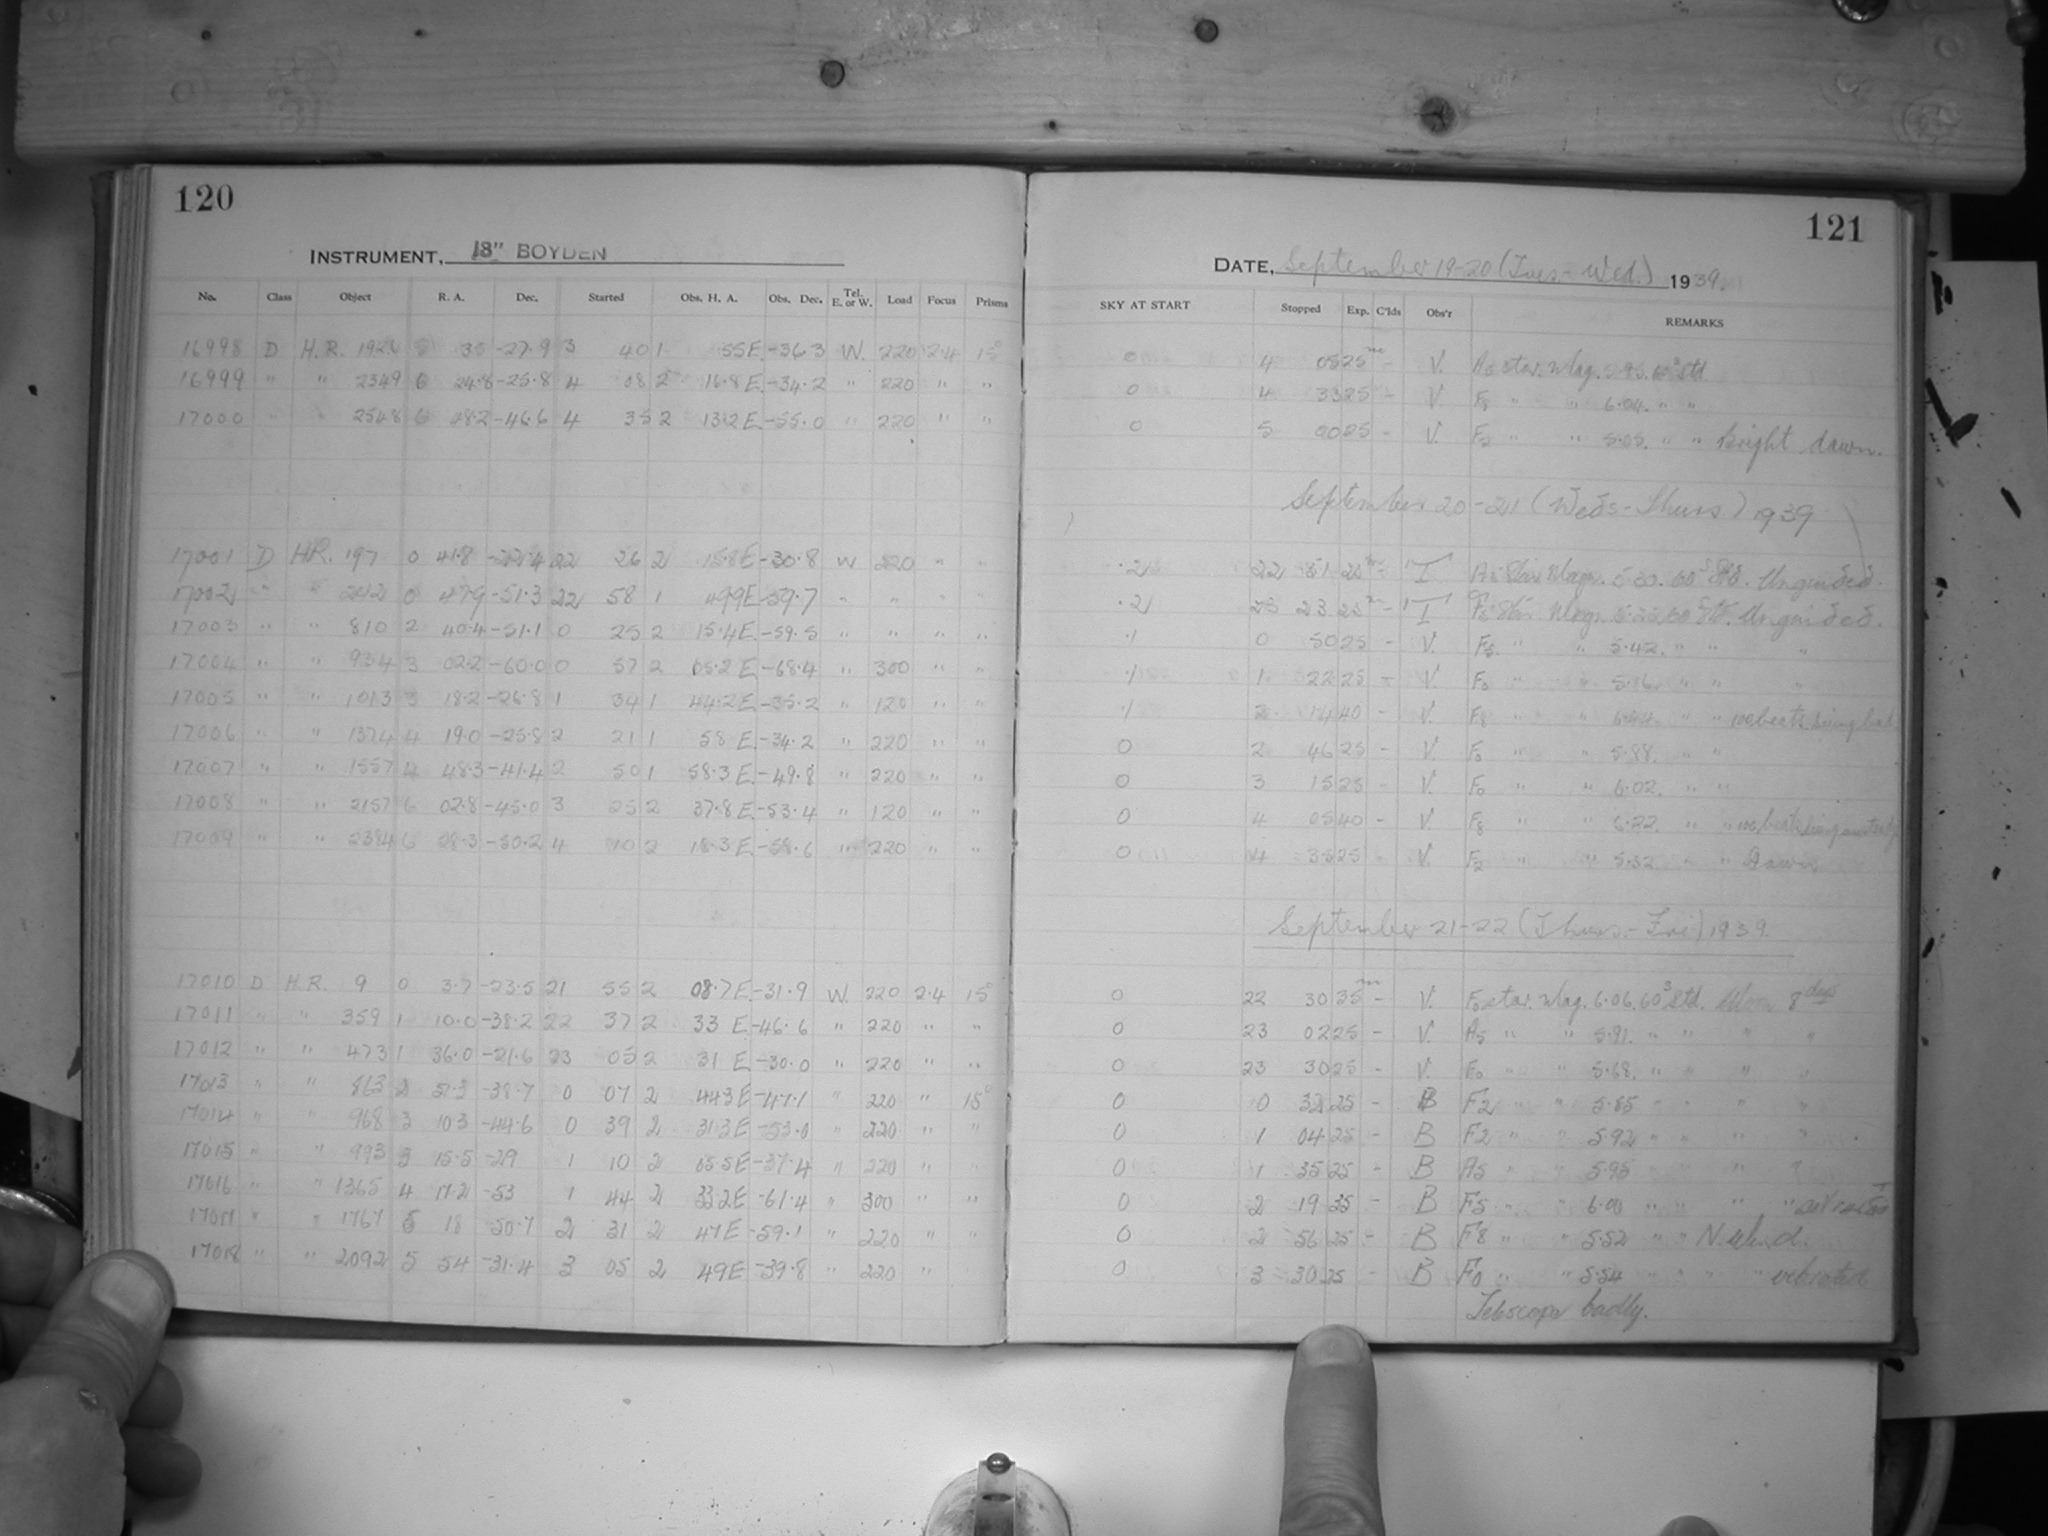 120
INSTRUMENT, 13" BOYDEN
No. Class Object R. A. Dec. Started Obs. H. A. Obs. Dec. Tel. E. or W. Load Focus Prisms
16998 D H.R. 1926 5 35 -27.9 3 40 1 55E -36.3 W. 220 2.4 15°
16999 " " 2349 6 24.8 -25.8 4 08 2 16.8E -34.2 " 220 " "
17000 " " 2548 6 48.2 -46.6 4 35 2 13.2E -55.0 " 220 " "
17001 D H.R. 197 0 41.8 -22.4 22 26 2 15.8E -30.8 W 220 " "
17002 " " 242 0 47.9 -51.3 22 58 1 49.9E -59.7 " " " "
17003 " " 810 2 40.4 -51.1 0 25 2 15.4E -59.5 " " " "
17004 " " 934 3 02.2 -60.0 0 57 2 05.2E -68.4 " 300 " "
17005 " " 1013 3 18.2 -26.8 1 34 1 44.2E -35.2 " 120 " "
17006 " " 1374 4 19.0 -25.8 2 21 1 58 E -34.2 " 220 " "
17007 " " 1557 4 48.3 -41.4 2 50 1 58.3E -49.8 " 220 " "
17008 " " 2157 6 02.8 -45.0 3 25 2 37.8E -53.4 " 120 " "
17009 " " 2384 6 28.3 -50.2 4 10 2 18.3E -58.6 " 220 " "
17010 D H.R. 9 0 3.7 -23.5 21 55 2 08.7E -31.9 W. 220 2.4 15°
17011 " " 359 1 10.0 -38.2 22 37 2 33 E -46.6 " 220 " "
17012 " " 473 1 36.0 -21.6 23 05 2 31 E -30.0 " 220 " "
17013 " " 863 2 51.3 -38.7 0 07 2 44.3E -47.1 " 220 " 15°
17014 " " 968 3 10.3 -44.6 0 39 2 31.3E -53.0 " 220 " "
17015 " " 993 3 15.5 -29 1 10 2 05.5E -37.4 " 220 " "
17016 " " 1365 4 17.2 -53 1 44 2 33.2E -61.4 " 300 " "
17017 " " 1767 5 18 -50.7 2 31 2 47E -59.1 " 220 " "
17018 " " 2092 5 54 -31.4 3 05 2 49E -39.8 " 220 "
121
DATE, September 19-20 (Tues.-Wed.) 1939.
SKY AT START Stopped Exp. C'lds Obs'r REMARKS
0 4 05 25m - V. A0 star. Mag. 5.93. 60s Std
0 4 33 25 - V. F8 " " 6.04. " "
0 5 00 25 - V. F2 " " 5.05. " " bright dawn.
September 20-21 (Weds-Thurs) 1939
.2 22 51 25m - T Star Magn. 5.30. 60s Std. Unguided.
.2 23 23 25m - T Star. Magn. 5.22. 60s Std. Unguided.
.1 0 50 25 - V. F5 " " 5.42. " " "
.1 1 22 25 - V. F0 " " 5.16. " " "
.1 2 14 40 - V. F8 " " 6.44. " " 100 beats.
0 2 46 25 - V. " " 5.88. " "
0 3 15 25 - V. F0 " " 6.02. " "
0 4 05 40 - V. F8 " " 6.22. " " 100 beats
0 4 35 25 - V. F2 " " 5.32. " " Dawn
September 21-22 (Thurs.-Fri) 1939.
0 22 30 35m - V. F0 star. Mag. 6.06. 60s Std. Moon 8 days
0 23 02 25 - V. A5 " " 5.91. " " " "
0 23 30 25 - V. F0 " " 5.68. " " " "
0 0 32 25 - B F2 " " 5.85 " " " "
0 1 04 25 - B F2 " " 5.92 " " " "
0 1 35 25 - B A5 " " 5.95 " " " "
0 2 19 35 - B F5 " " 6.00 " " " "
0 2 56 25 - B F8 " " 5.52 " " N. Wind.
0 3 30 25 - B F0 " " 5.54 " " " vibrated
Telescope badly.